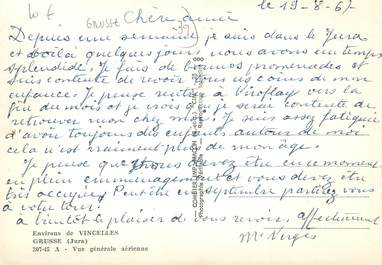 le 19-8-67
GRUSSE Chère amie
Depuis une semaine, je suis dans le Jura
et voilà quelques jours nous avons un temps
splendide. Je fais de bonnes promenades et
suis contente de revoir tous les coins de mon
enfance. Je pense rentrer à Viroflay vers la
fin du mois et je crois que je serai contente de
retrouver mon chez moi. Je suis assez fatiguée
d'avoir toujours des enfants autour de moi
cela n'est vraiment plus de mon âge.
Je pense que vous devez être en ce moment
en plein emménagement et vous devez être
très occupée. Peut être en septembre partirez vous
à votre tour.
à bientôt le plaisir de vous revoir. affectueusement
Environs de VINCELLES
GRUSSE (Jura)
207-45 A - Vue générale aérienne
COMBIER IMP. MACON